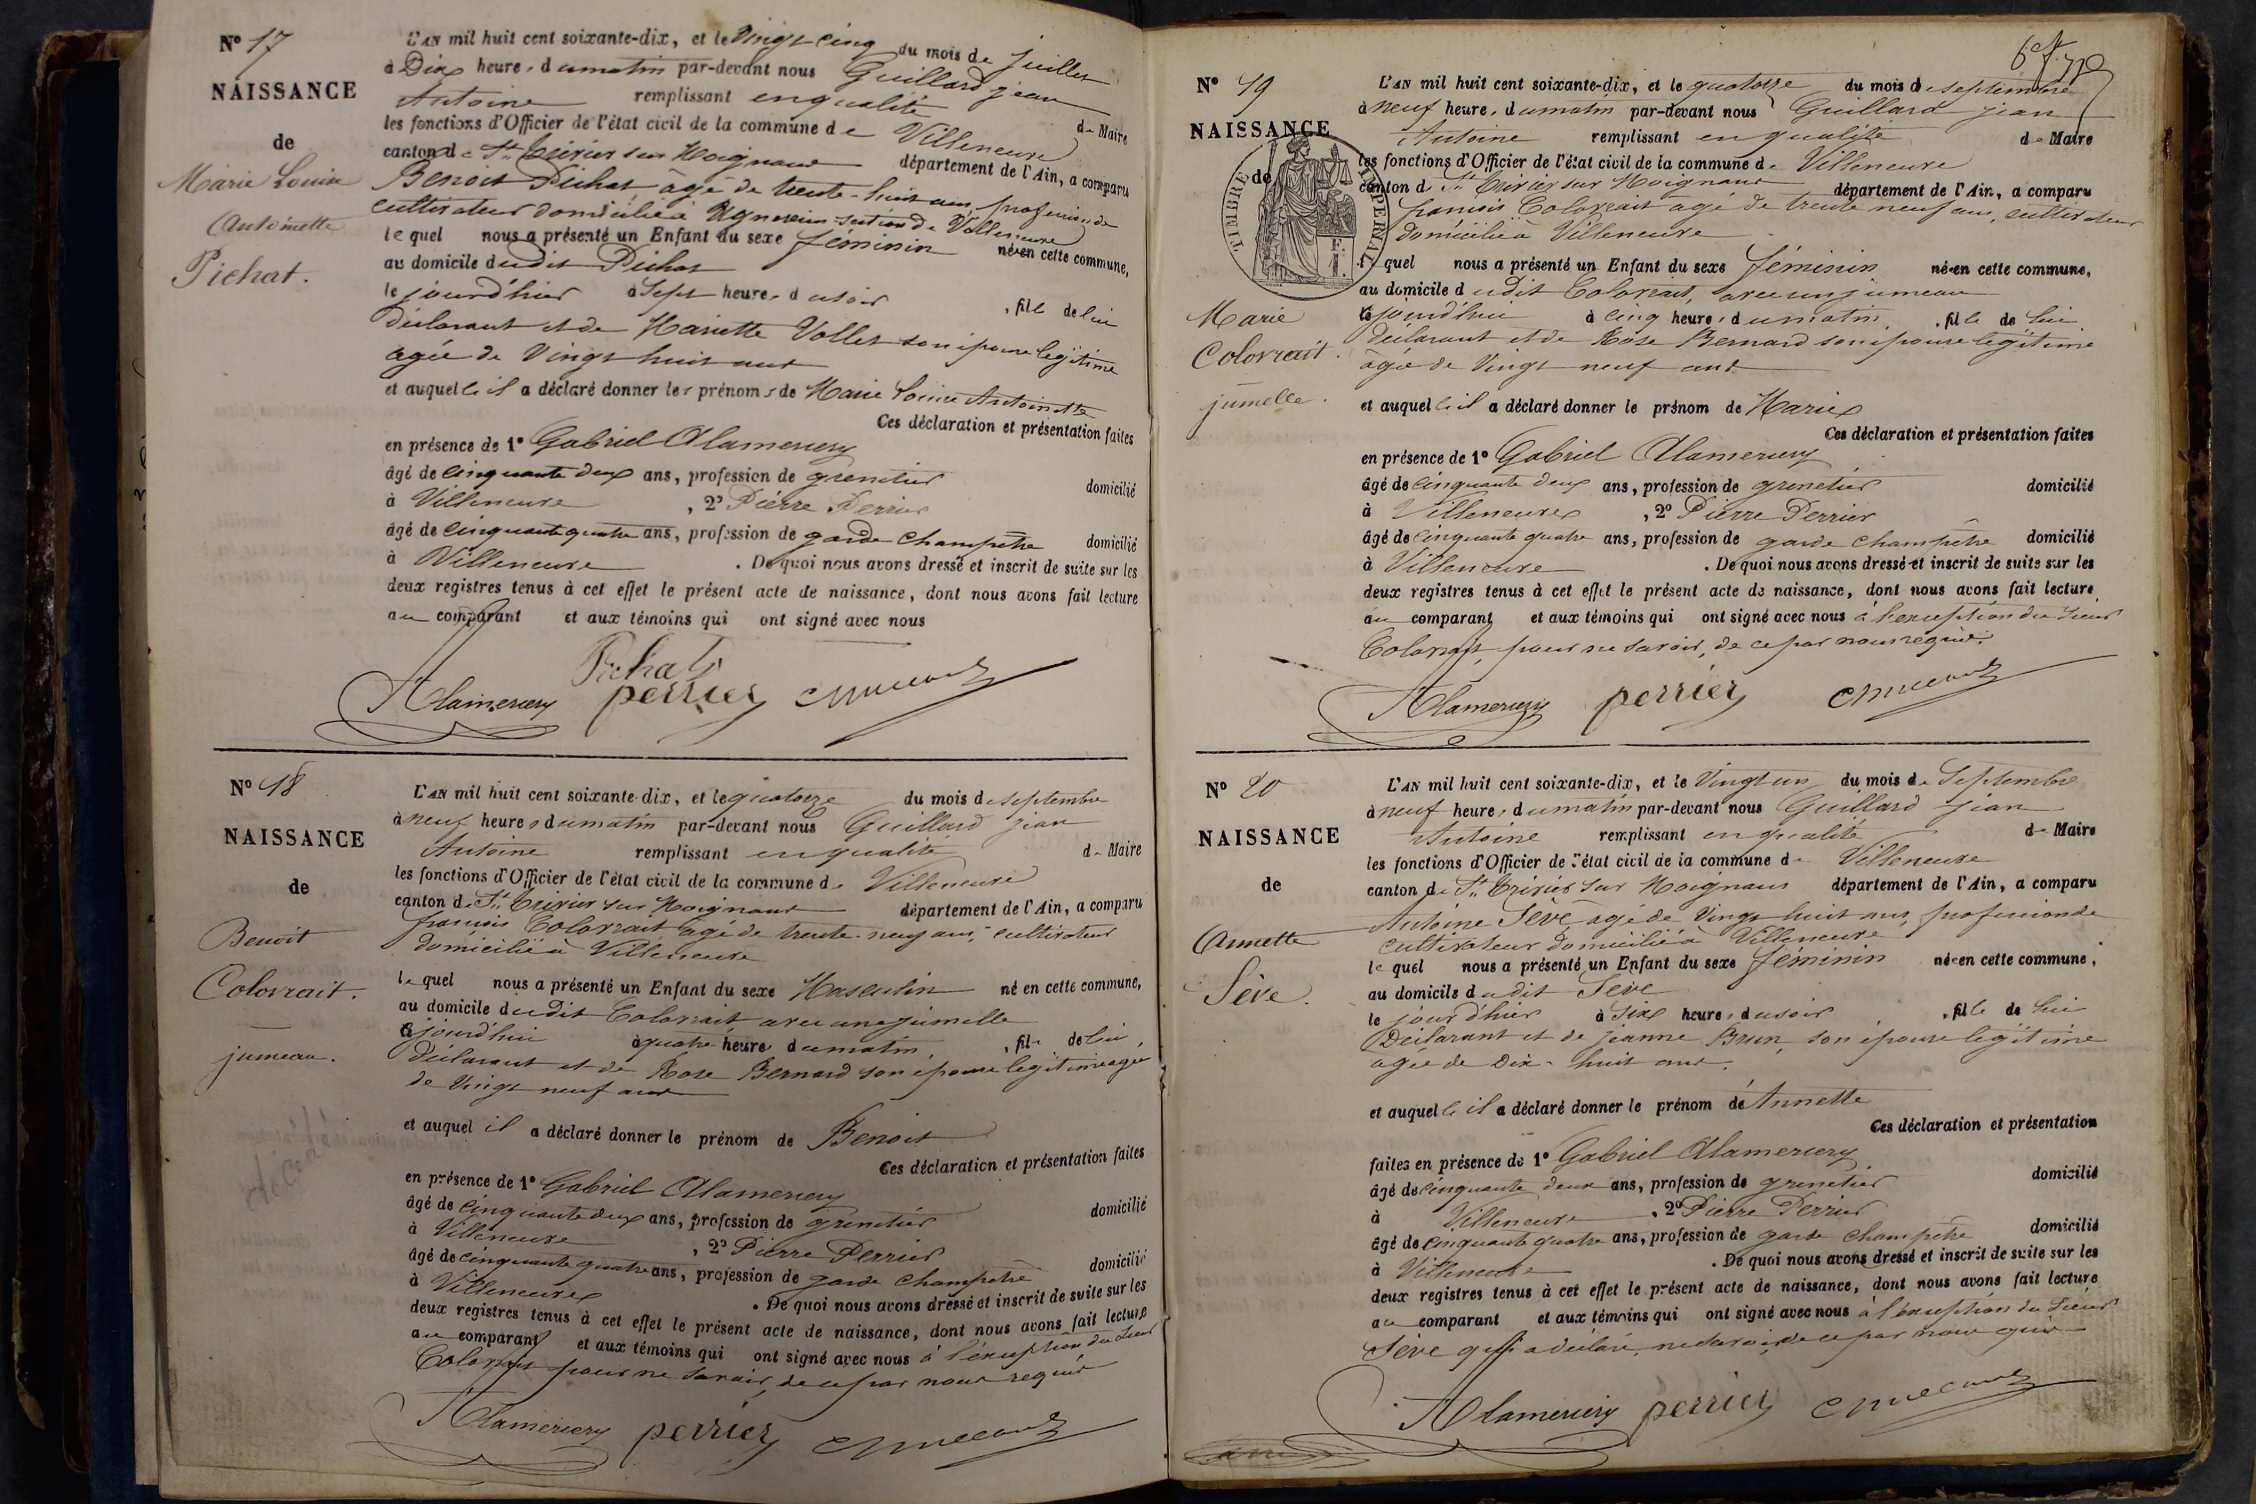 N° 17
NAISSANCE
de
Marie Louise
Antoinette
Pichat.
L'AN mil huit cent soixante-dix, et le Vingt cinq du mois de juillet
à Dix heures du matin par-devant nous Guillard jean
Antoine remplissant en qualité de Maire
les fonctions d'Officier de l'état civil de la commune de Villeneuve
canton de St. Trivier sur Moignans département de l'Ain, a comparu
Benoit Pichat âgé de trente-huit ans, profession de
cultivateur domicilié à Agnereins section de Villeneuve
lequel nous a présenté un Enfant du sexe féminin née en cette commune,
au domicile dudit Pichat
le jour d'hier à Sept heures du soir, fille de lui
déclarant et de Mariette Vollet son épouse legitime
agée de Vingt huit ans
et auquelle il a déclaré donner les prénoms de Marie Louise Antoinette
Ces déclaration et présentation faites
en présence de 1° Gabriel Alamercery
âgé de cinquante deux ans, profession de grenetier domicilié
à Villeneuve, 2° Pierre Perrier
âgé de cinquante quatre ans, profession de garde champêtre domicilié
à Villeneuve. De quoi nous avons dressé et inscrit de suite sur les
deux registres tenus à cet effet le présent acte de naissance, dont nous avons fait lecture
au comparant et aux témoins qui ont signé avec nous
Pichat
Alamercery perrier
N° 18
NAISSANCE
de
Benoit
Colovrait.
jumeau.
L'AN mil huit cent soixante-dix, et le quatorze du mois de septembre
à neuf heures du matin par-devant nous Guillard jean
Antoine remplissant en qualité de Maire
les fonctions d'Officier de l'état civil de la commune de Villeneuve
canton de St. Trivier sur Moignans département de l'Ain, a comparu
françois Colovrait âgé de trente-neuf ans, cultivateur
domicilié à Villeneuve
lequel nous a présenté un Enfant du sexe Masculin né en cette commune,
au domicile dudit Colovrait avec une jumelle
ajourd'hui à quatre heures du matin, fils de lui
déclarant et de Rose Bernard son épouse legitime agée
de Vingt neuf ans
et auquel il a déclaré donner le prénom de Benoit
Ces déclaration et présentation faites
en présence de 1° Gabriel Alamercery
âgé de cinquante deux ans, profession de grenetier domicilié
à Villeneuve, 2° Pierre Perrier
âgé de cinquante quatre ans, profession de garde champêtre domicilié
à Villeneuve. De quoi nous avons dressé et inscrit de suite sur les
deux registres tenus à cet effet le présent acte de naissance, dont nous avons fait lecture
au comparant et aux témoins qui ont signé avec nous à l'exception du sieur
Colovrait pour ne savoir, de ce par nous requis
Alamercery perrier
N° 19
NAISSANCE
de
TIMBRE IMPERIAL
Marie
Colovrait.
jumelle.
L'AN mil huit cent soixante-dix, et le quatorze du mois de septembre
à neuf heures du matin par-devant nous Guillard jean
Antoine remplissant en qualité de Maire
les fonctions d'Officier de l'état civil de la commune de Villeneuve
canton d St. Trivier sur Moignans département de l'Ain, a comparu
françois Colovrait agé de trente neuf ans, cultivateur
domicilié à Villeneuve
lequel nous a présenté un Enfant du sexe féminin née en cette commune,
au domicile dudit Colovrait, avec un jumeau
ajourd'hui à cinq heures du matin, fille de lui
déclarant et de Rose Bernard son épouse légitime
âgée de Vingt neuf ans
et auquelle il a déclaré donner le prénom de Marie
Ces déclaration et présentation faites
en présence de 1° Gabriel Alamercery
âgé de cinquante deux ans, profession de grenetier domicilié
à Villeneuve, 2° Pierre Perrier
âgé de cinquante quatre ans, profession de garde champêtre domicilié
à Villeneuve. De quoi nous avons dressé et inscrit de suite sur les
deux registres tenus à cet effet le présent acte de naissance, dont nous avons fait lecture
au comparant et aux témoins qui ont signé avec nous à l'exception du sieur
Colovrait, pour ne savoir, de ce par nous requis.
Alamercery perrier
N° 20
NAISSANCE
de
Annette
Sève.
L'AN mil huit cent soixante-dix, et le Vingt un du mois de Septembre
à neuf heures du matin par-devant nous Guillard jean
Antoine remplissant en qualité de Maire
les fonctions d'Officier de l'état civil de la commune de Villeneuve
canton de St. Trivier sur Moignans département de l'Ain, a comparu
Antoine Sève, agé de Vingt huit ans, profession de
cultivateur domicilié à Villeneuve
lequel nous a présenté un Enfant du sexe féminin née en cette commune,
au domicile dudit Seve
le jour d'hier à Six heures du soir, fille de lui
Déclarant et de jeanne Brun, son épouse legitime
agée de Dix-huit ans.
et auquelle il a déclaré donner le prénom de Annette
Ces déclaration et présentation
faites en présence de 1° Gabriel Alamercery
âgé de cinquante deux ans, profession de grenetier domicilié
à Villeneuve, 2° Pierre Perrier
âgé de cinquante quatre ans, profession de garde champêtre domicilié
à Villeneuve. De quoi nous avons dressé et inscrit de suite sur les
deux registres tenus à cet effet le présent acte de naissance, dont nous avons fait lecture
au comparant et aux témoins qui ont signé avec nous à l'exception du Sieur
Sève qui a déclaré ne savoir, de ce par nous
Alamercery perrier